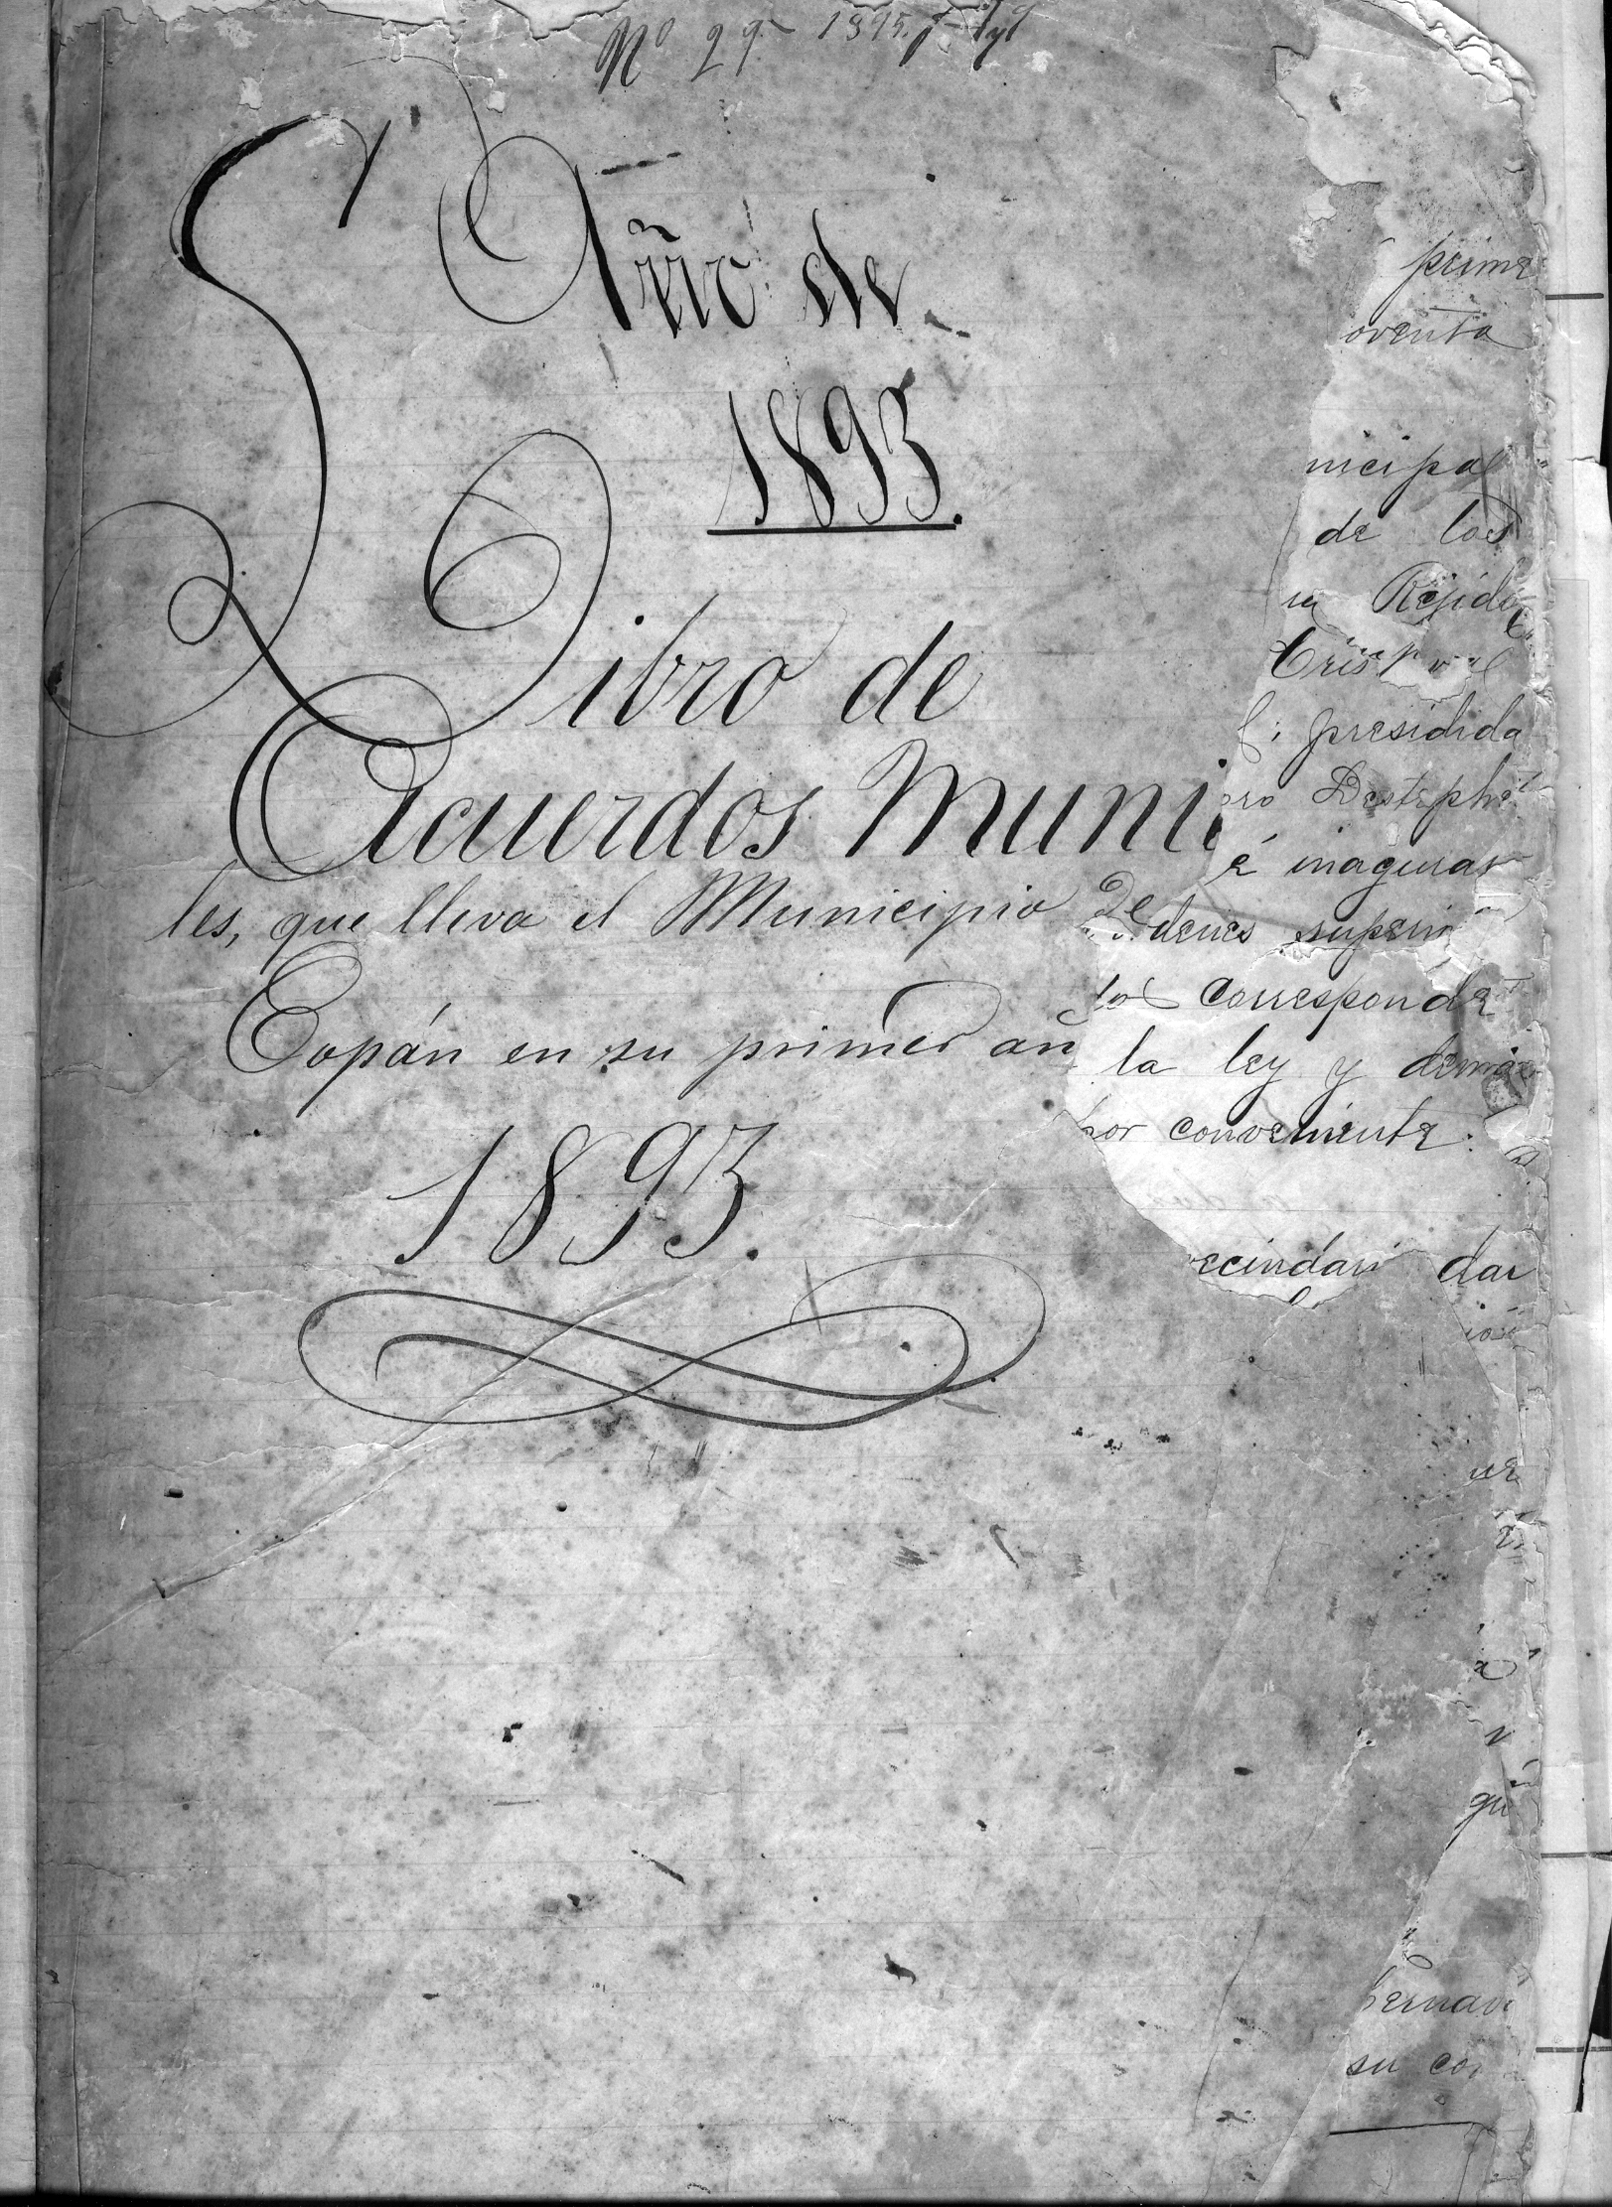 Nº 29.
Año de
1893.
Libro de
Acuerdos Muni
les, que lleva el Municipio De
Copán en su primer añ
1893.
prime
oventa
nicipal
de los
Rejido
f; presidida
é inagurar
denes superi
los corresponde
la ley y demás
por conveniente.
ecindari dar
gu
su co